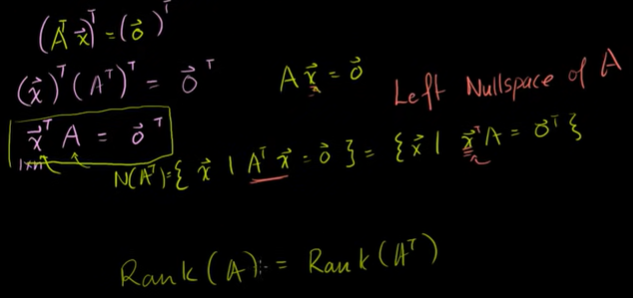 (Aᵀ x⃗)ᵀ = (0⃗)ᵀ
(x⃗)ᵀ (Aᵀ)ᵀ = 0⃗ᵀ
A x⃗ = 0⃗
Left Nullspace of A
x⃗ᵀ A = 0⃗ᵀ
N(Aᵀ) = { x⃗ | Aᵀ x⃗ = 0⃗ } = { x⃗ | x⃗ᵀ A = 0⃗ᵀ }
Rank(A) := Rank(Aᵀ)